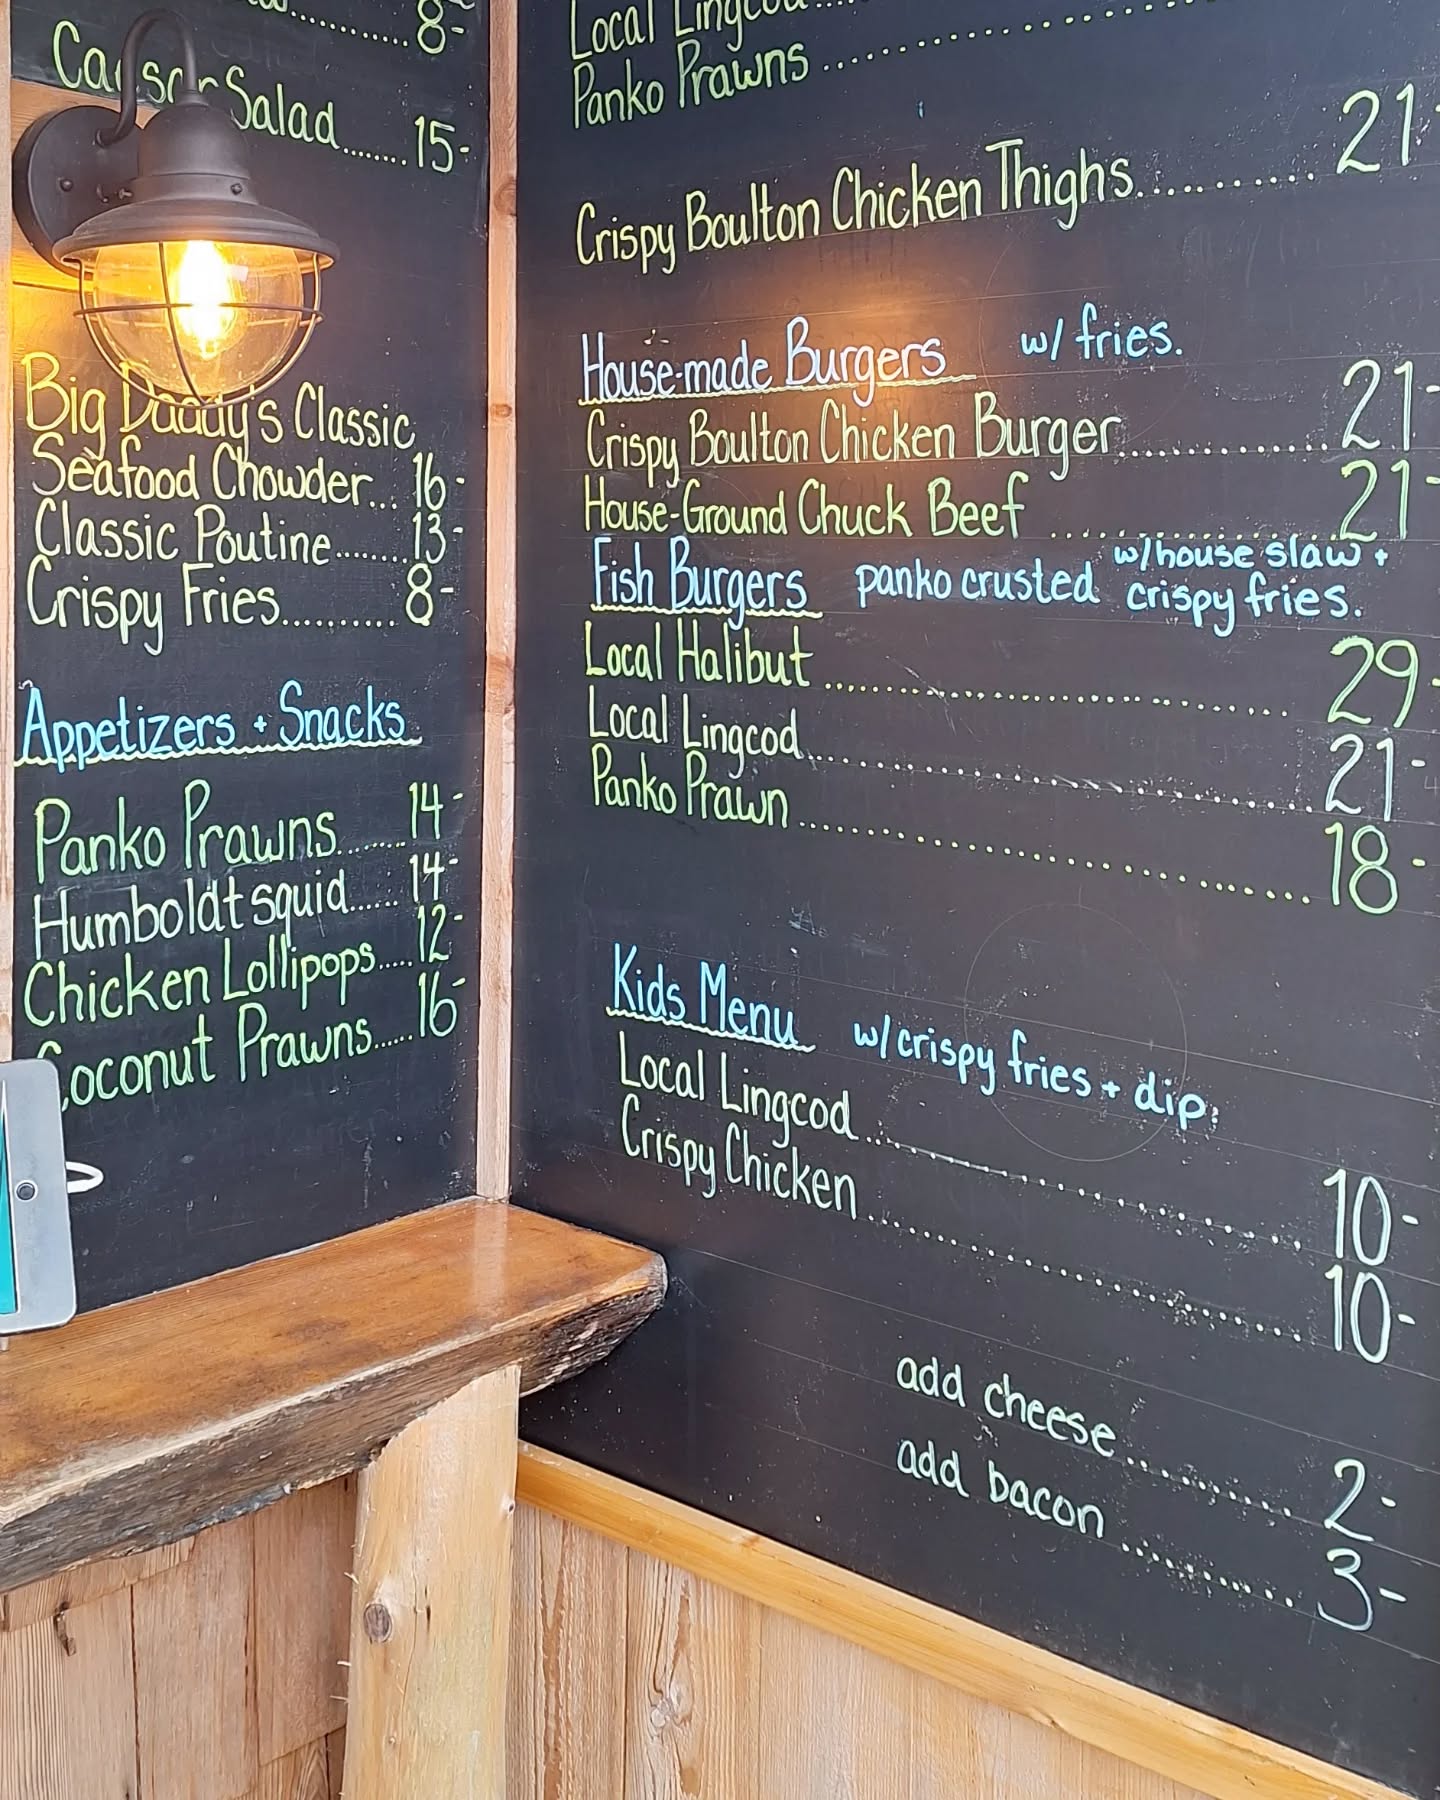 8-
Caesar Salad........15-
Big Daddy's Classic
Seafood Chowder... 16-
Classic Poutine........13-
Crispy Fries........... 8-
Appetizers + Snacks
Panko Prawns........14-
Humboldt squid......14-
Chicken Lollipops.....12-
Coconut Prawns......16-
Local Lingcod
Panko Prawns
Crispy Boulton Chicken Thighs............ 21-
House-made Burgers w/ fries.
Crispy Boulton Chicken Burger................21-
House-Ground Chuck Beef ....................21-
Fish Burgers panko crusted w/house slaw + crispy fries.
Local Halibut ........................................ 29-
Local Lingcod........................................21-
Panko Prawn ........................................18-
Kids Menu w/crispy fries + dip:
Local Lingcod ........................................ 10-
Crispy Chicken ........................................ 10-
add cheese ............ 2-
add bacon ............. 3-